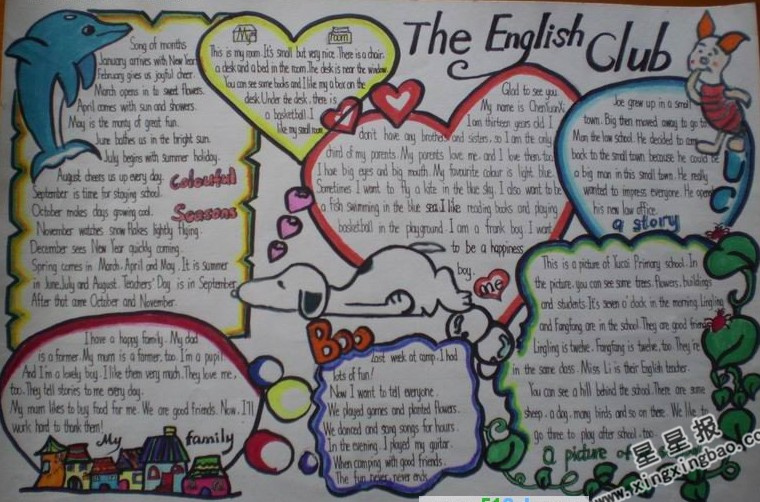 The English Club
Song of months
January arrives with New Year.
February gives us joyful cheer.
March opens in to sweet flowers.
April comes with sun and showers.
May is the munty of great fun.
June bathes us in the bright sun.
July begins with summer holiday.
August cheers us up every day.
September is time for staying school.
October makes days growing cool.
November watchs snow flakes lightly flying.
December sees New Year quickly coming.
Spring comes in March. April and May. It is summer
in June, July and August. Teachers' Day is in September.
After that come October and November.
Colourful
Seasons
My room
This is my room. It's small but very nice. There is a chair,
a desk and a bed in the room. The desk is near the window.
You can see some books and I like my a box on the
desk. Under the desk, there is
a basketball. I
like my small room.
Glad to see you.
My name is ChenYuanXi.
I am thirteen years old. I
don't have any brothers and sisters, so I am the only
child of my parents. My parents love me, and I love them, too.
I have big eyes and big mouth. My favourite colour is light blue.
Sometimes I want to fly a kite in the blue sky. I also want to be
a fish swimming in the blue sea. I like reading books and playing
basketball in the playground. I am a frank boy. I want
to be a happiness
boy.
me
Joe grew up in a small
town. Big then moved away to go to
Man the law school. He decided to come
back to the small town because he could be
a big man in this small town. He really
wanted to impress everyone. He opened
his new law office.
a story
UC
I have a happy family. My dad
is a farmer. My mum is a farmer, too. I'm a pupil.
And I'm a lovely boy. I like them very much. They love me,
too. They tell stories to me every day.
My mum likes to buy food for me. We are good friends. Now, I'll
work hard to thank them!
My family
Boo
Last week at camp, I had
lots of fun!
Now I want to tell everyone.
We played games and planted flowers.
We danced and sang songs for hours.
In the evening, I played my guitar.
When camping with good friends.
The fun never, never ends.
This is a picture of Yucai Primary school. In
the picture, you can see some trees, flowers, buildings
and students. It's seven o'clock in the morning. Lingling
and Fangfang are in the school. They are good friends.
Lingling is twelve. Fangfang is twelve, too. They're
in the same class. Miss Li is their English teacher.
You can see a hill behind the school. There are some
sheep, a dog, many birds and so on there. We like to
go three to play after school, too.
a picture of
星星报
www.xingxingbao.com